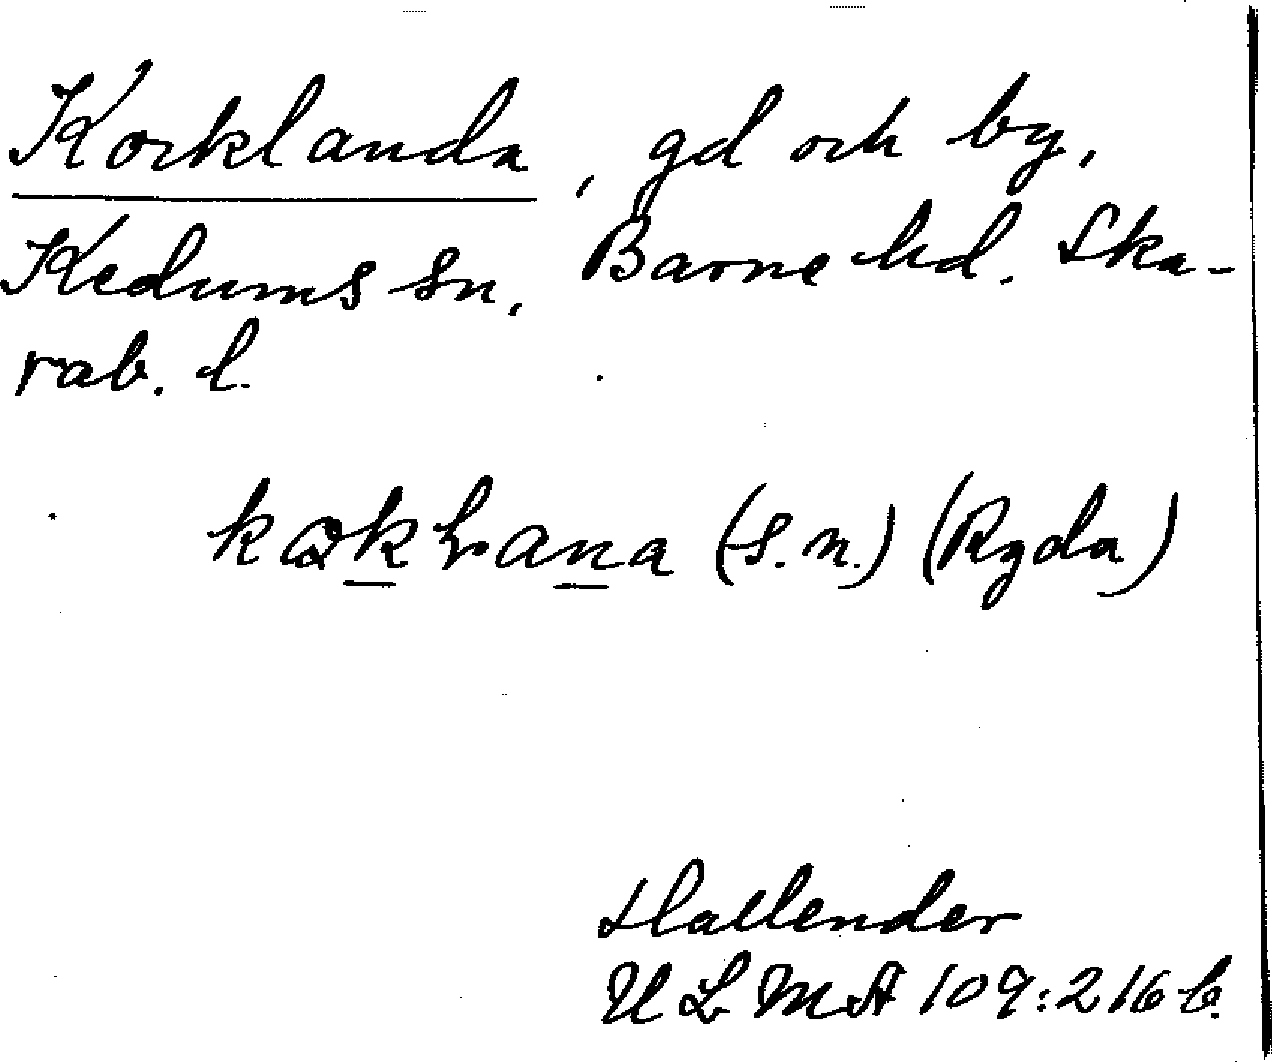 Korklanda, gd och by,
Kedums sn, Barne hd. Ska-
rab. l.
(s.n.) (Ryda)
Hallender
ULMA 109:216 b.